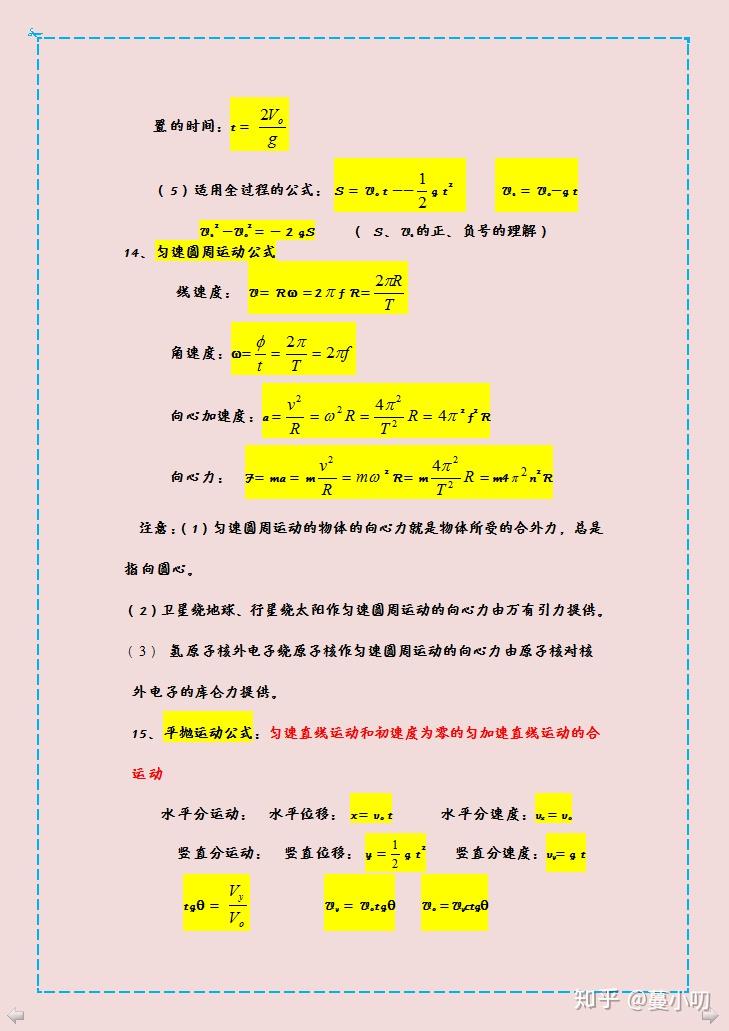 置的时间：t = 2Vo/g
（5）适用全过程的公式： S = Vo t −− 1/2 g t²　　Vt = Vo−g t
Vt²−Vo² = − 2 gS　　（ S、Vt的正、负号的理解）
14、匀速圆周运动公式
线速度： V= Rω =2πf R= 2πR/T
角速度：ω= φ/t = 2π/T = 2πf
向心加速度：a = v²/R = ω²R = 4π²/T² R = 4π²f²R
向心力： F= ma = m v²/R = mω²R= m 4π²/T² R =m4π²n²R
注意：（1）匀速圆周运动的物体的向心力就是物体所受的合外力，总是
指向圆心。
（2）卫星绕地球、行星绕太阳作匀速圆周运动的向心力由万有引力提供。
（3） 氢原子核外电子绕原子核作匀速圆周运动的向心力由原子核对核
外电子的库仑力提供。
15、平抛运动公式：匀速直线运动和初速度为零的匀加速直线运动的合
运动
水平分运动： 水平位移： x= vo t　　水平分速度：vx = vo
竖直分运动： 竖直位移： y = 1/2 g t²　　竖直分速度：vy= g t
tgθ = Vy/Vo　　Vy = Votgθ　　Vo =Vyctgθ
知乎 @蔓小叨